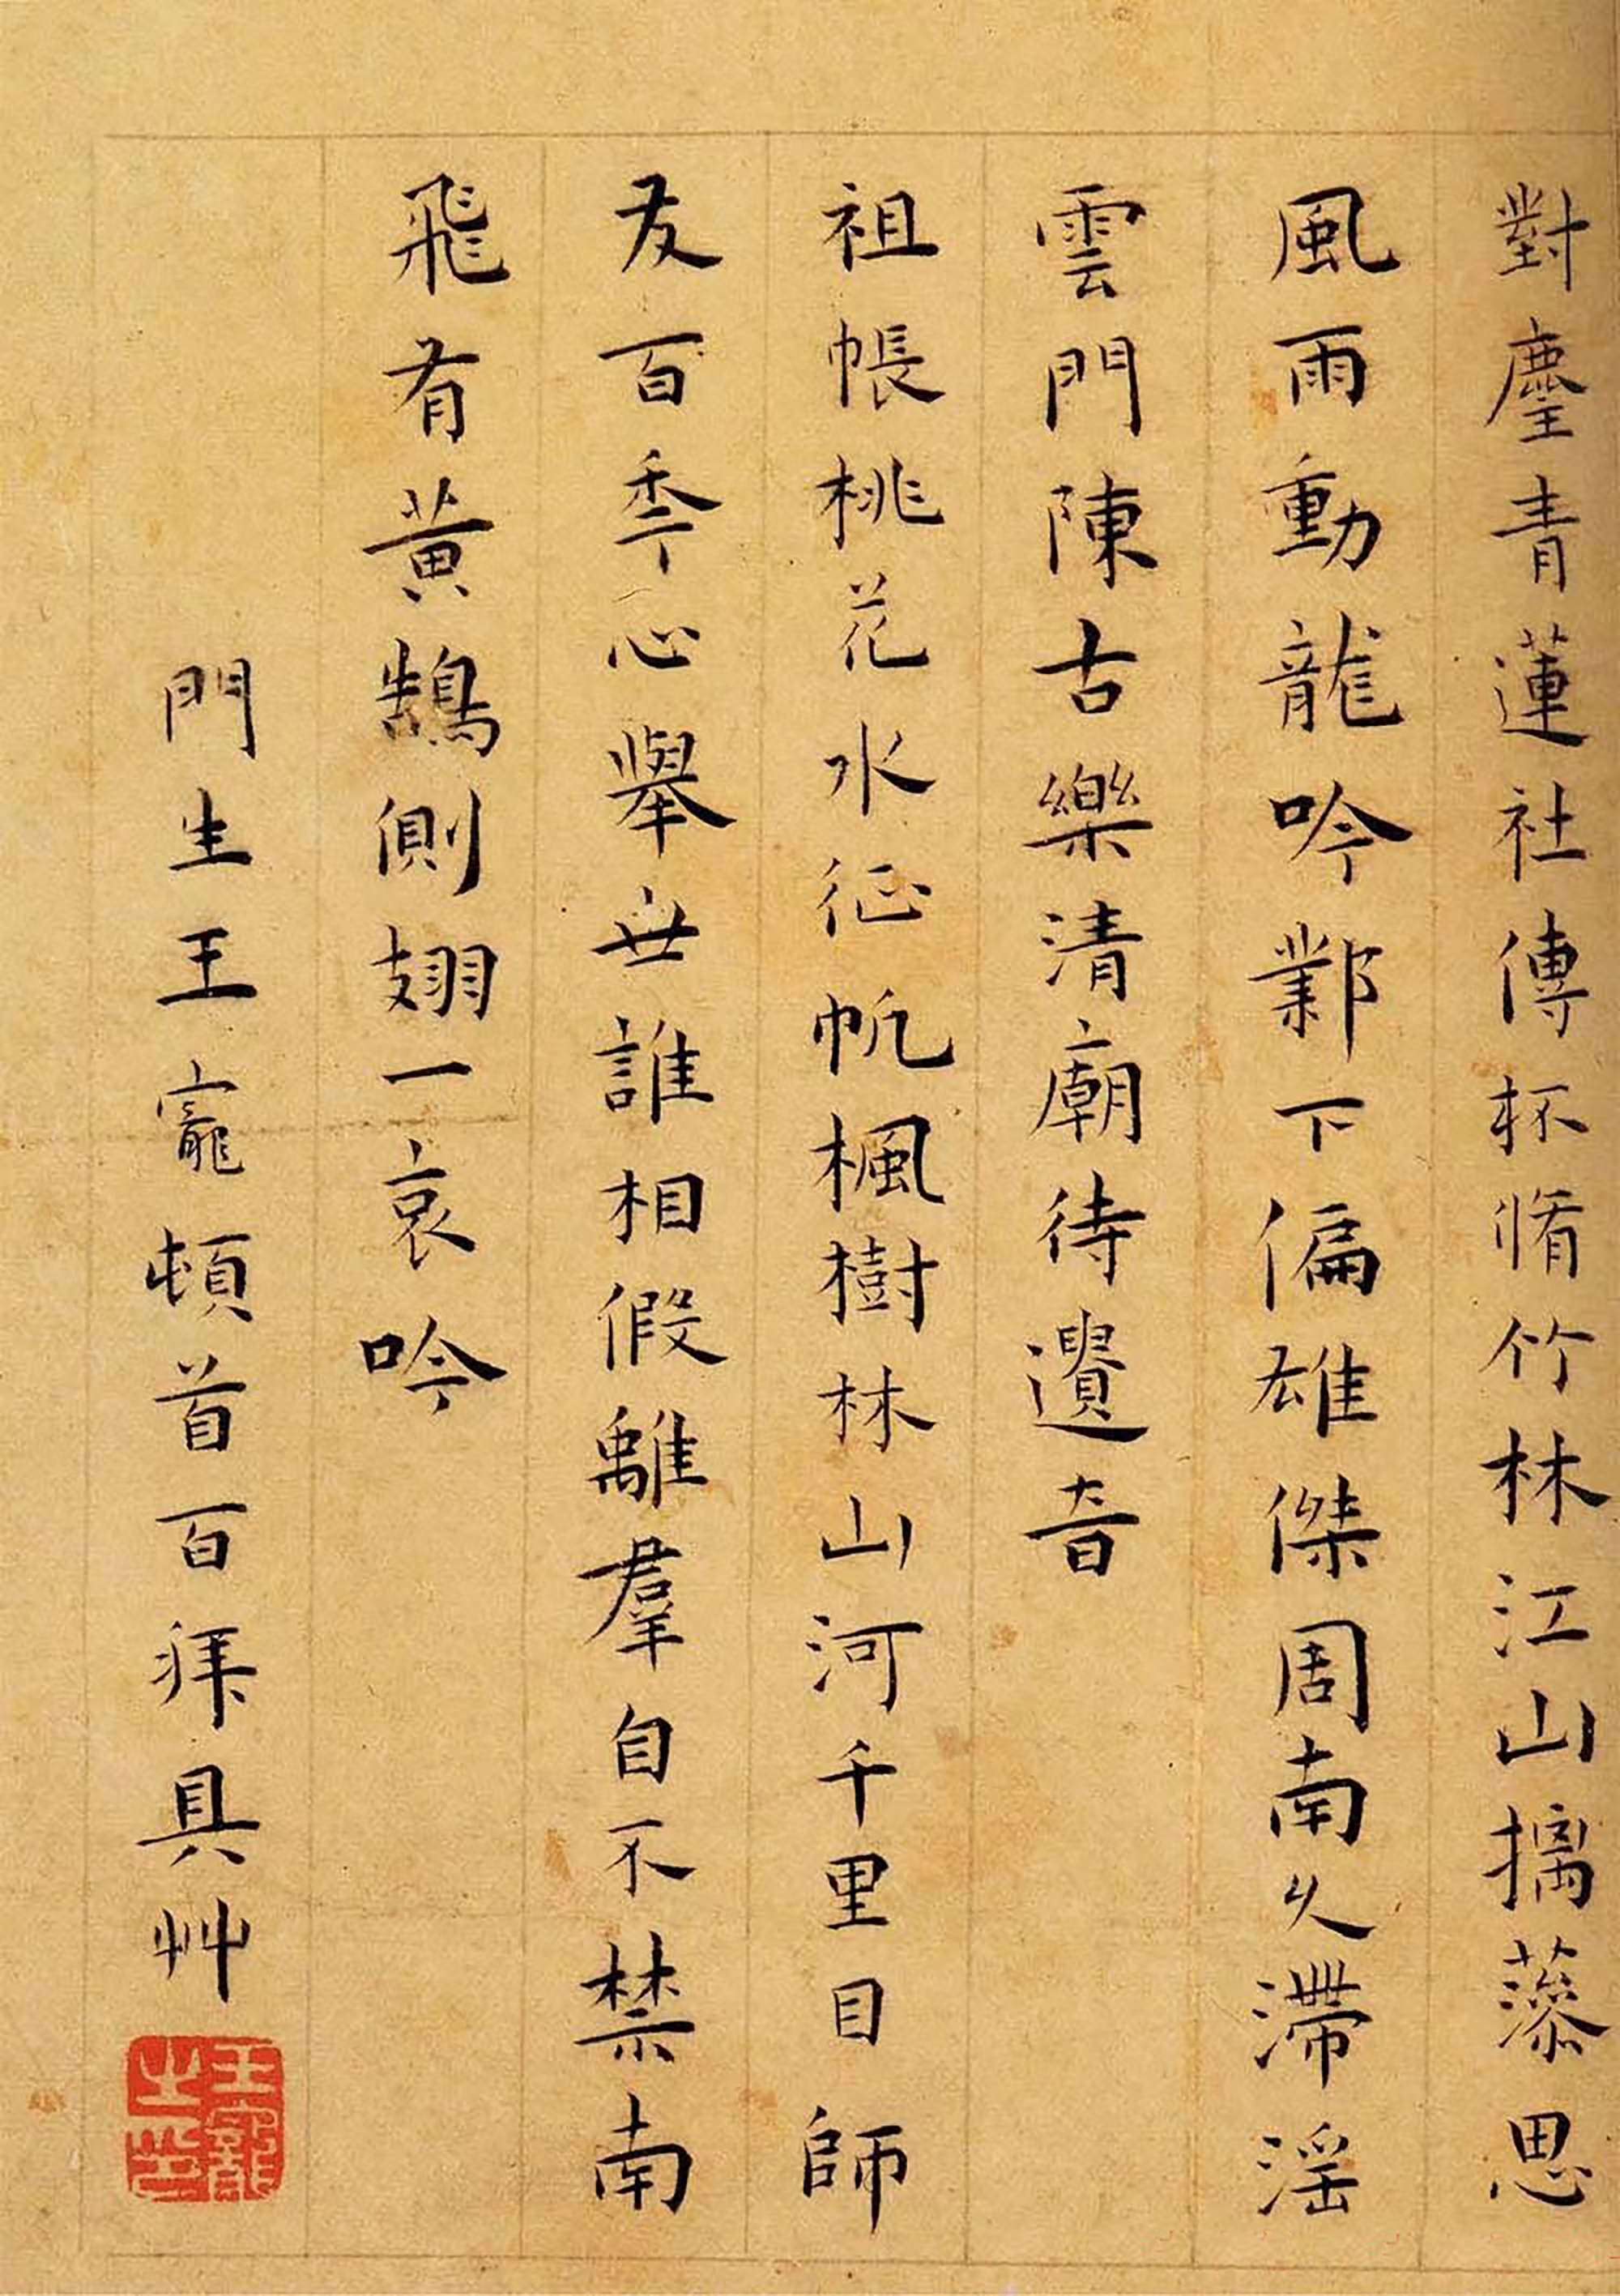 對麈青蓮社傳杯脩竹林江山摛藻思
風雨動龍吟鄴下偏雄傑周南久滯淫
雲門陳古樂清廟待遺音
祖帳桃花水征帆楓樹林山河千里目師
友百秊心舉世誰相假離羣自不禁南
飛有黃鵠側翅一哀吟
門生王寵頓首百拜具艸
王寵之印